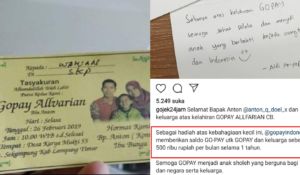 Kepada
WARJAN
STCP
Tasyakuran
Alhamdulillah Telah Lahir
Putra Kedua Kami :
Gopay Allvarian
Selasa, 26 Februari 2019
Jam : 10.00 WIB s/d Selesai
Tempat : Desa Karya Mukti 55
Sekampung Kab Lampung Timur
Hormat Kami
Bp. Anton / Ibu
Selamat atas kelahiran GOPAY
semoga sehat selalu dan menjadi
anak yang berbakti kepada
dan Indonesia
5.249 suka
gojek24jam Selamat Bapak Anton @anton_q_doel_x dan
keluarga atas kelahiran GOPAY ALLFARIAN CB.
Sebagai hadiah atas kebahagiaan kecil ini, @gopayindonesia
memberikan saldo GO-PAY utk GOPAY dan keluarga sebesar
500 ribu rupiah per bulan selama 1 tahun.
Semoga GOPAY menjadi anak sholeh yang berguna bagi
dan negara serta keluarga.